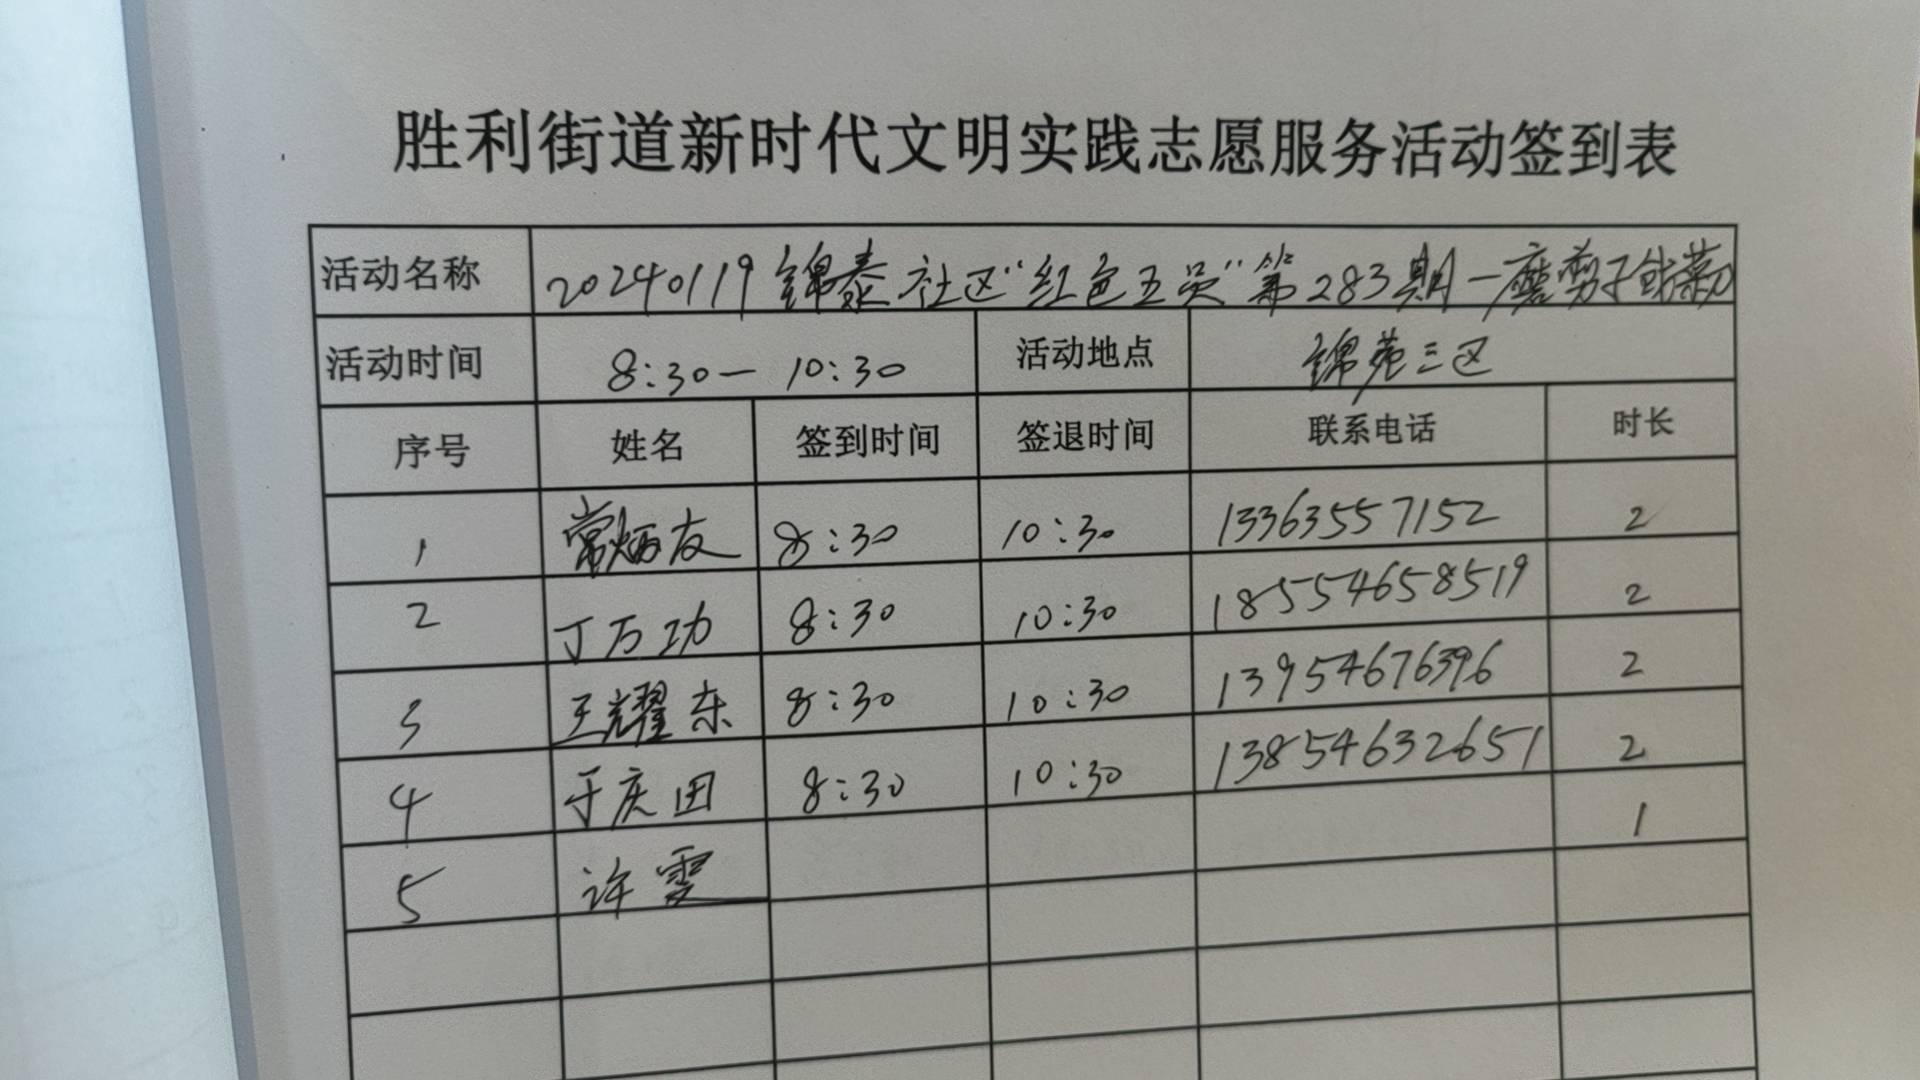 胜利街道新时代文明实践志愿服务活动签到表
活动名称 20240119锦泰社区“红色五员”第283期—磨剪子戗菜刀
活动时间 8:30— 10:30 活动地点 锦苑三区
序号 姓名 签到时间 签退时间 联系电话 时长
1 常炳友 8:30 10:30 13363557152 2
2 丁万功 8:30 10:30 18554658519 2
3 王耀东 8:30 10:30 13954676396 2
4 于庆田 8:30 10:30 13854632651 2
5 许雯 1